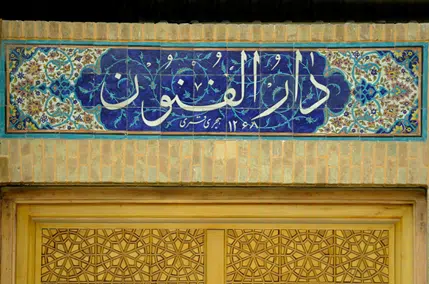 دارُ الفُنون
۱۲۶۸ هجری قمری